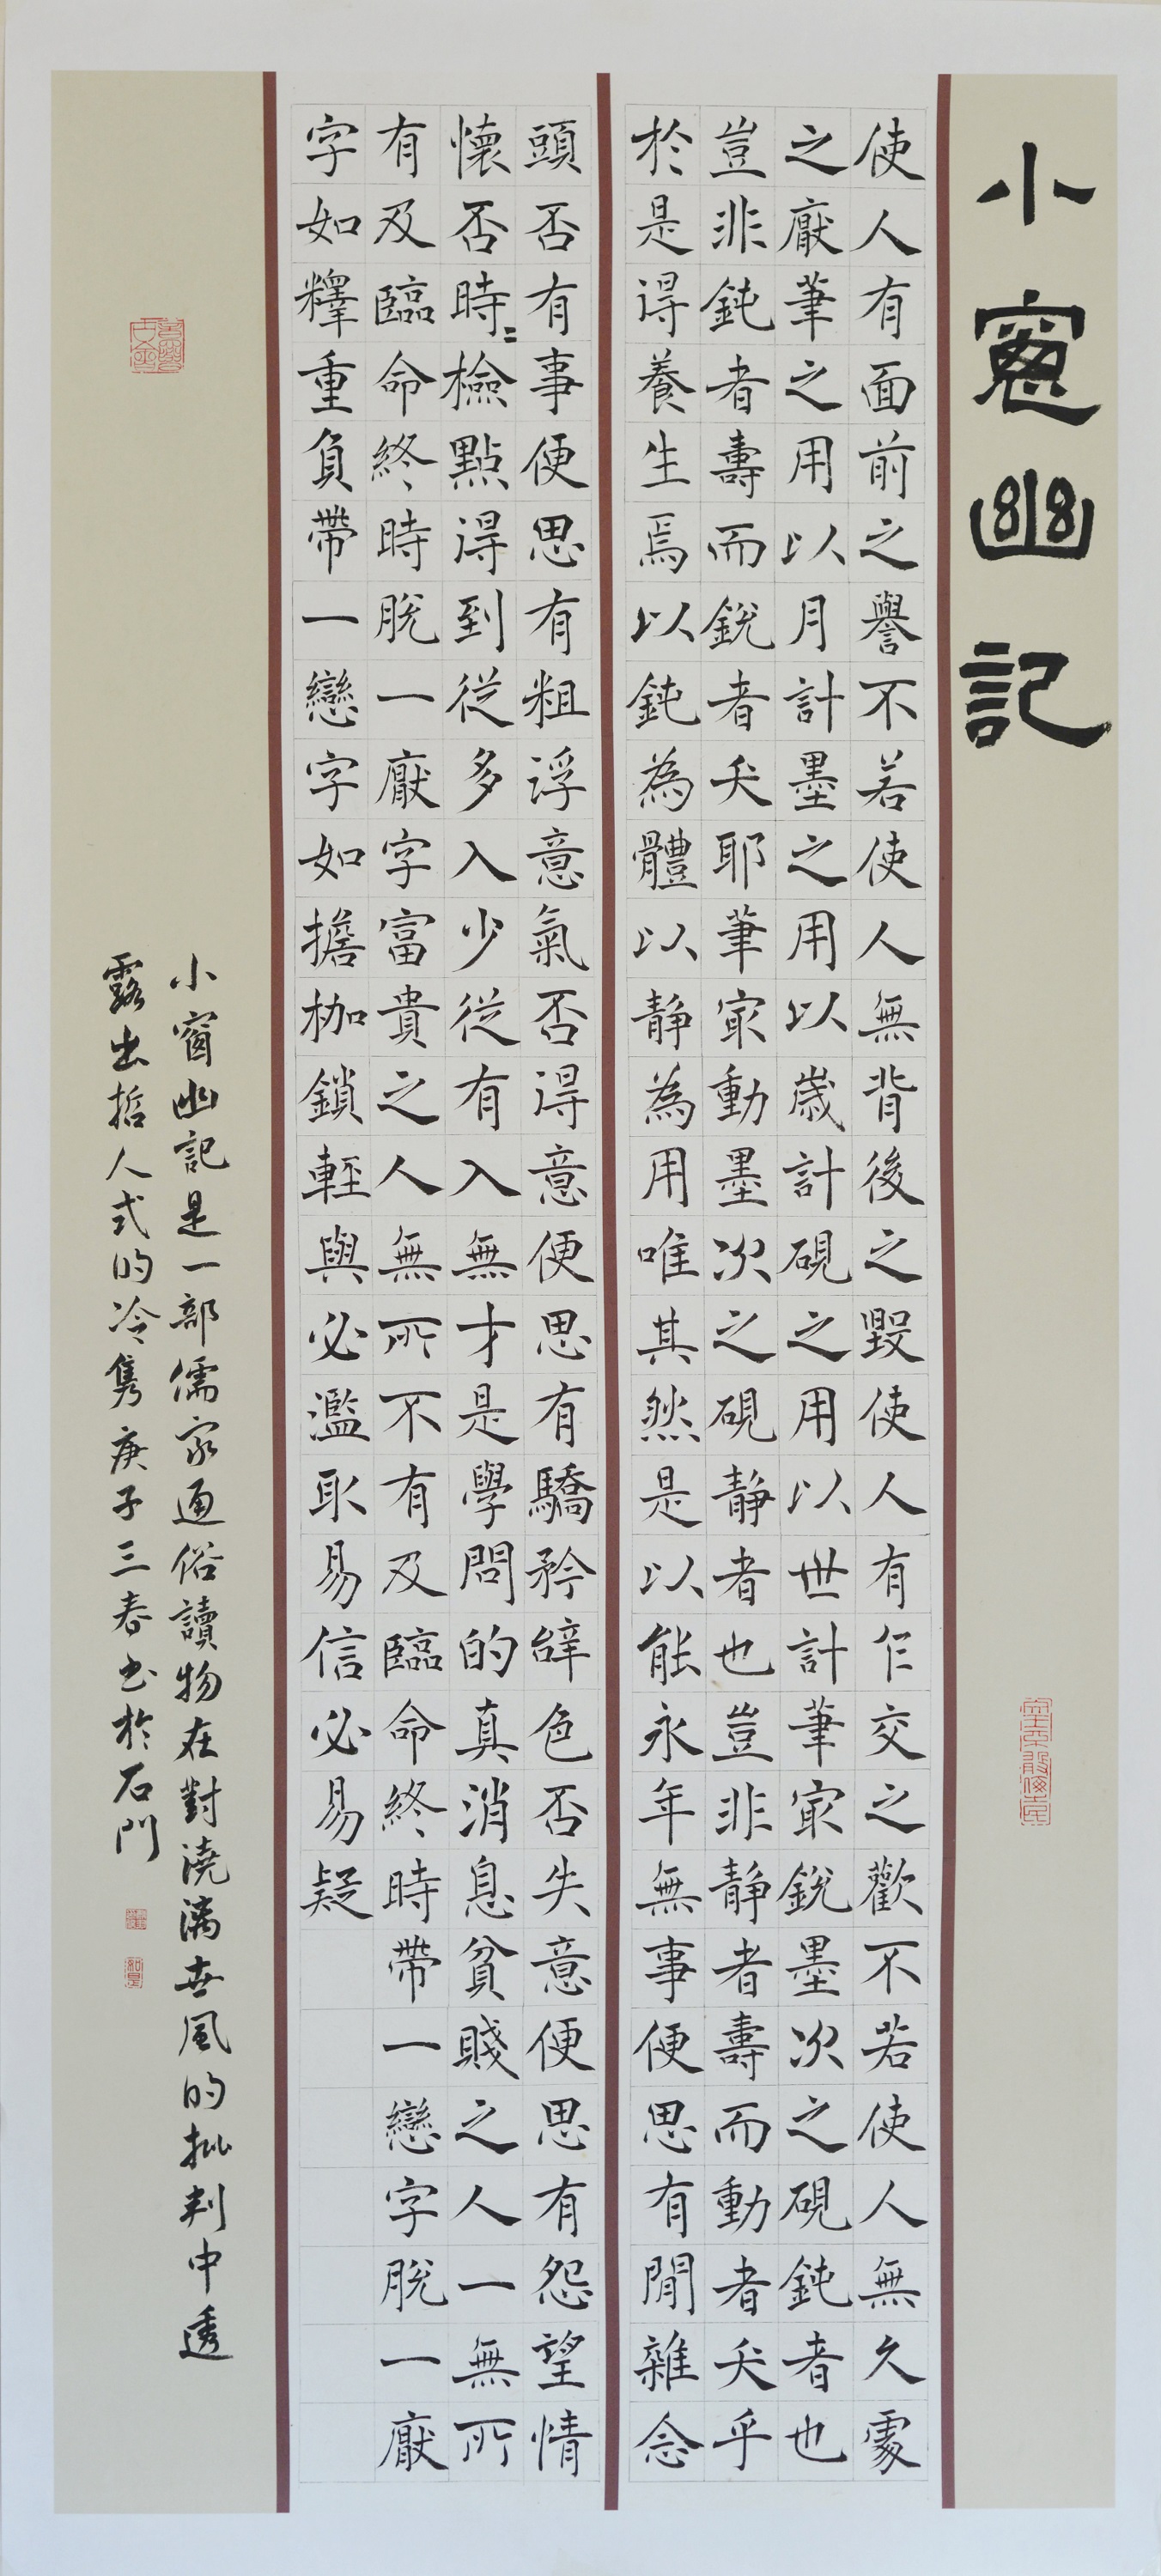 小窻幽記
使人有面前之譽不若使人無背後之毀使人有乍交之歡不若使人無久處
之厭筆之用以月計墨之用以歲計硯之用以世計筆冣銳墨次之硯鈍者也
豈非鈍者壽而銳者夭耶筆冣動墨次之硯靜者也豈非靜者壽而動者夭乎
於是得養生焉以鈍為體以靜為用唯其然是以能永年無事便思有閒雜念
頭否有事便思有粗浮意氣否得意便思有驕矜辭色否失意便思有怨望情
懷否時〻檢點得到從多入少從有入無才是學問的真消息貧賤之人一無所
有及臨命終時脫一厭字富貴之人無所不有及臨命終時帶一戀字脫一厭
字如釋重負帶一戀字如擔枷鎖輕與必濫取易信必易疑
小窗幽記是一部儒家通俗讀物在對澆漓世風的批判中透
露出哲人式的冷雋庚子三春書於石門